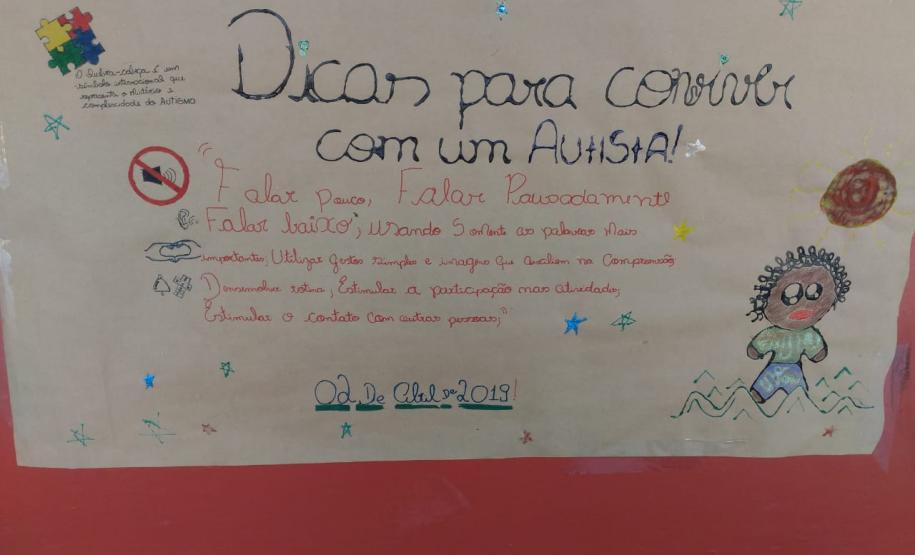 O Quebra-cabeça é um
símbolo internacional que
representa o mistério e
complexidade do AUTISMO
Dicas para conviver
com um AUtIStA!
"Falar pouco, Falar Pausadamente
Falar baixo, usando Somente as palavras Mais
importantes, Utilizar gestos simples e imagens que auxiliem na Compreensão;
Desenvolver rotina, Estimular a participação nas atividades;
Estimular o contato com outras pessoas;"
02 De Abril De 2019!